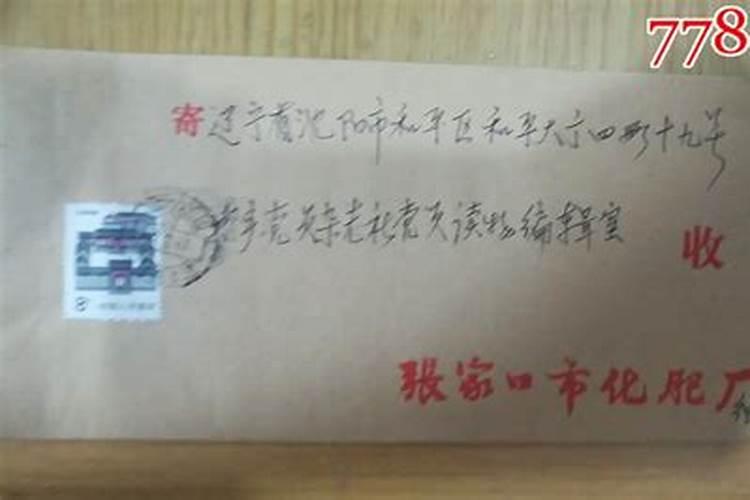 778
寄 辽宁省沈阳市和平区和平大街四段十九号
共产党员杂志社党员读物编辑室 收
张家口市化肥厂
8